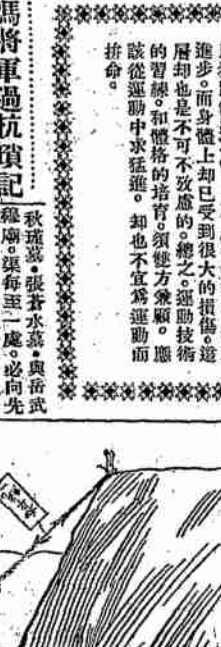 進步。而身體上却已受到很大的損傷。這
層却也是不可不攷慮的。總之。運動技術
的習練。和體格的培育。須雙方兼顧。應
該從運動中求猛進。却也不宜爲運動而
拚命。
馮將軍過杭瑣記
秋瑾墓。張蒼水墓。與岳武
穆廟。渠每至一處。必向先